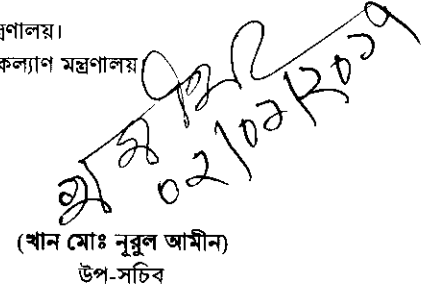 ন্ত্রণালয়।
কল্যাণ মন্ত্রণালয়
০২/০২/২০১৭
(খান মোঃ নূরুল আমীন)
উপ-সচিব